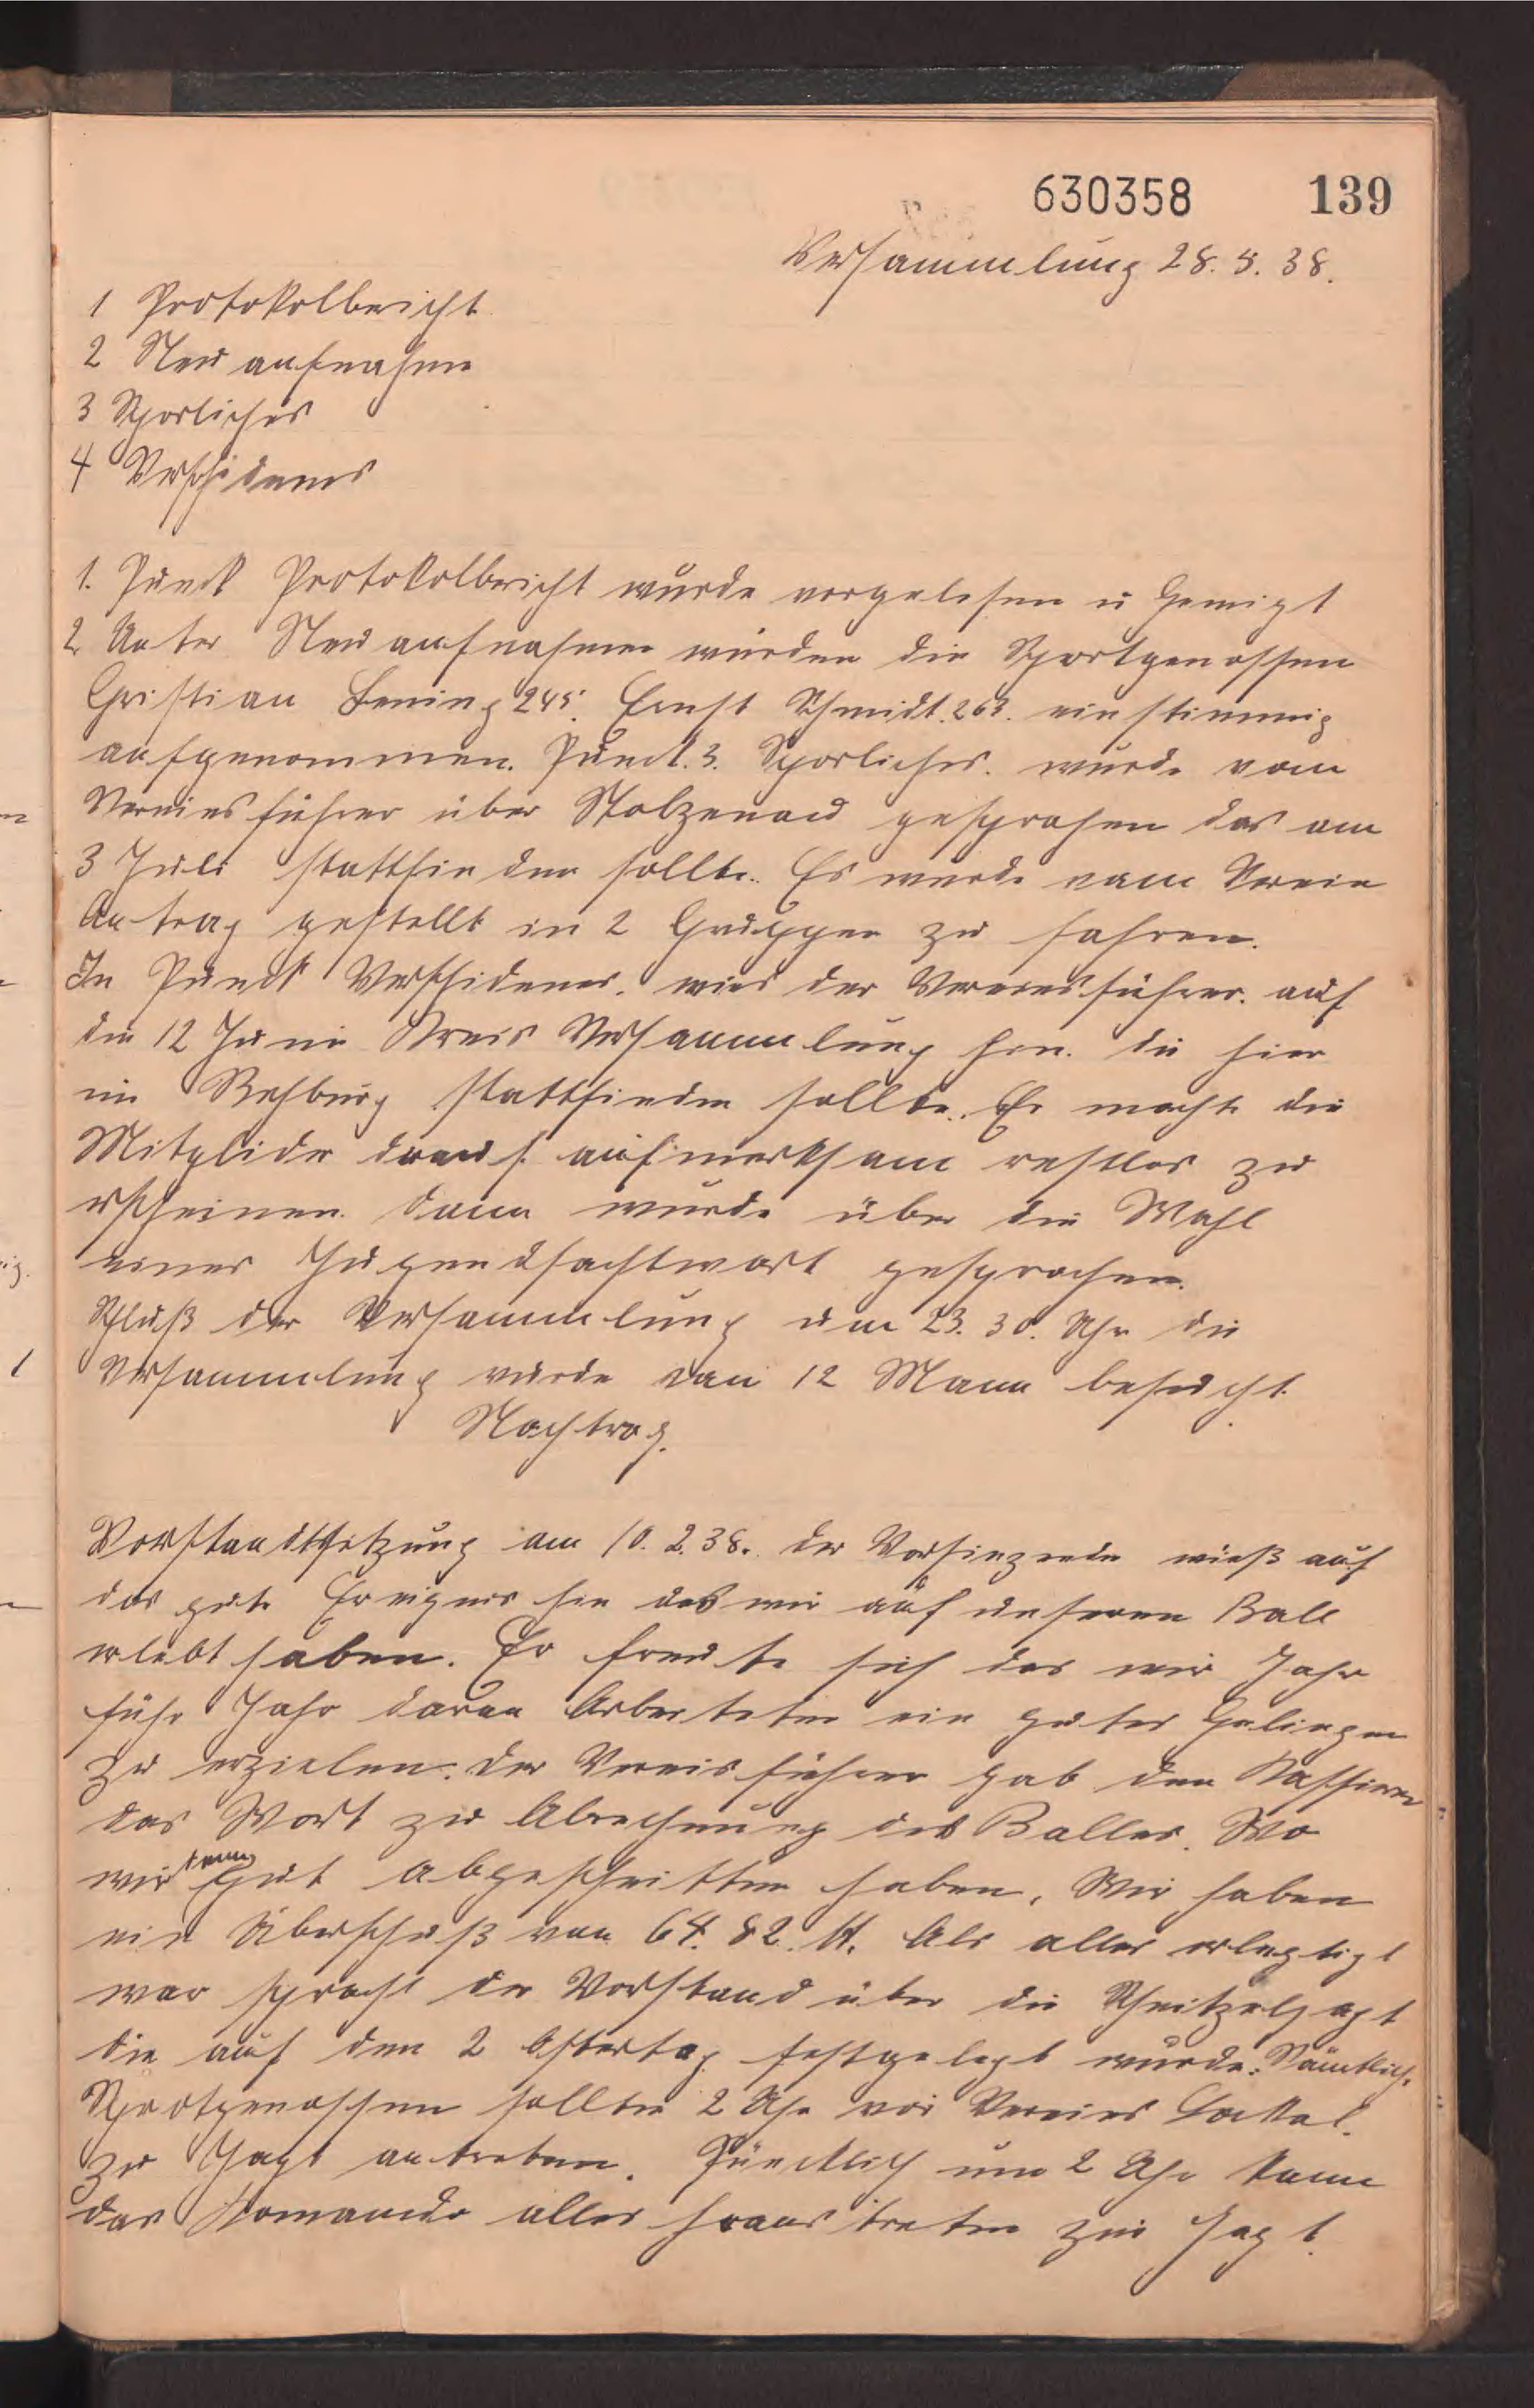 630358 139
Versammlung 28. 5. 38.
1 Protokolbericht
2 Neu aufnahme
3 Sporliches
4 Verschidenes
1. Punckt Protokolbericht wurde vorgelesen u Gemigt
2. Unter Neu aufnahmen wurden die Sportgenossen
Christian Lening 245. Ernst Schmidt. 263. einstimmig
aufgenommen. Punckt. 3. Sporliches. wurde vom
Vereinsführer über Stolzenau gesprochen das am
3 Juli stattfinden sollte. Es wurde vom Verein
Antrag gestellt in 2 Gruppen zu fahren.
In Punckt Verschidenes. wies der Vereinsführer. auf
die 12 Juni Kreis Versammlung hin. die hier
in Rehburg stattfinden sollte. Er machte die
Mitglider drauf aufmerksam restlos zu
erscheinen. dann wurde über die Wahl
eines Jugendfachtwart gesprochen.
Schluß der Versammlung um 23. 30. Uhr die
Versammlung wurde von 12 Mann besucht.
Nachtrag.
Vorstandtsitzung am 10. 2. 38. der Vorsinzende wieß auf
das gute Ereignis hin das wir auf unseren Ball
erlebt haben. Er freute sich das wir Jahr
führ Jahr daran Arbeiteten ein gutes Gelingen
zu erzielen. der Vereinsführer gab den Kassierer
das Wort zu Abrechnung des Balles. Wo
wir Gut abgeschnitten haben. Wir haben
ein Überschuß von 64. 82. M. Als alles erlegtigt
war sprach der Vorstand über die Schnitzeljagt
die auf den 2 Ostertag festgelegt wurde. Sämtliche
Sportgenossen sollten 2 Uhr vor Vereins Lockal.
zu Jagt antreten. Püncktlich um 2 Uhr kam
das Komando alles heraus treten zur Jagt.